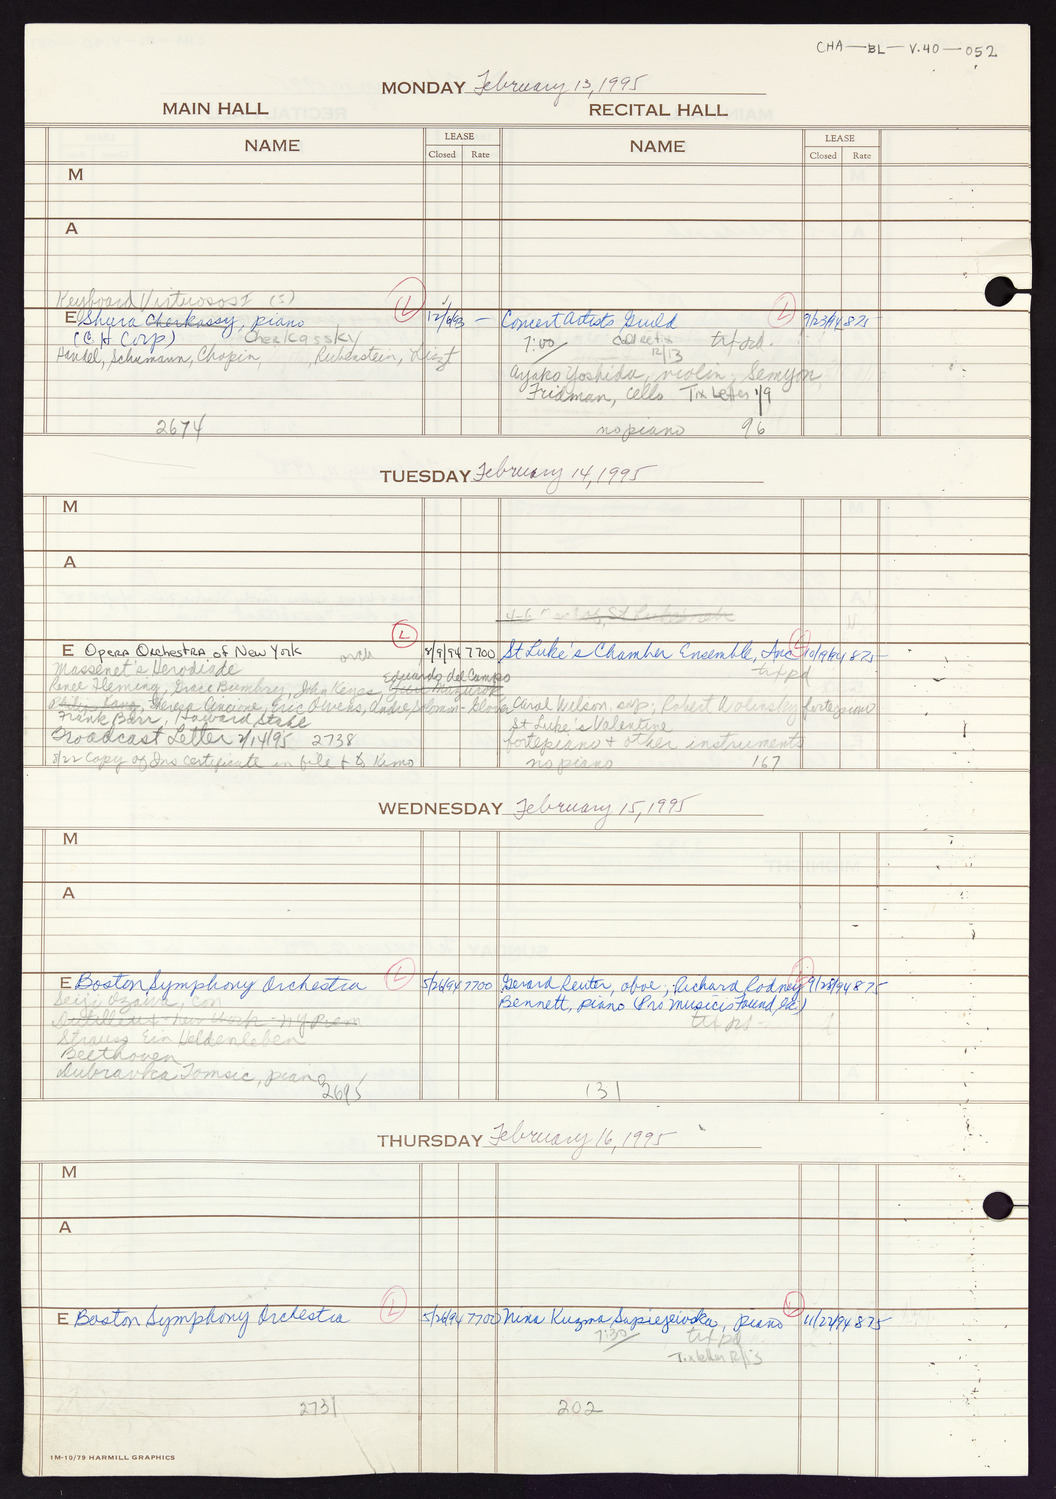 CHA—BL—V.40—052
MONDAY February 13, 1995
MAIN HALL RECITAL HALL
NAME LEASE NAME LEASE
Closed Rate Closed Rate
M
A
Keyboard Virtuosos I (5)
E Shura Cherkassy, piano L 12/6/93 — Concert Artists Guild L 9/23/94 875
(C.H. Corp) Cherkassky 7:00 collect 12/13 tix pd.
Handel, Schumann, Chopin, Rubenstein, Liszt
Ayako Yoshida, violin; Semyon
Fridman, cello Tix Letter 1/9
2674 no piano 96
TUESDAY February 14, 1995
M
A
E Opera Orchestra of New York orch L 2/9/94 7700 St Luke's Chamber Ensemble, Inc L 10/19/94 875
Massenet's Herodiade Eduardo del Campo tix pd
Renee Fleming, Grace Bumbrey, John Keyes,
Theresa Cincione, Eric Owens, Andre Solomon-Glover Carol Wilson, sop; Robert Wolinsky fortepiano
Frank Barr, Howard Stahl St Luke's Valentine
Broadcast Letter 2/14/95 2738 fortepiano + other instruments
8/22 Copy of Ins certificate in file + to Kimo no piano 167
WEDNESDAY February 15, 1995
M
A
E Boston Symphony Orchestra L 5/26/94 7700 Gerard Reuter, oboe; Richard Rodney 9/28/94 875
Seiji Ozawa, con Bennett, piano (Pro Musicis Found, Inc)
Dutilleux - New Work - NY Prem tix pd
Strauss Ein Heldenleben
Beethoven
Dubravka Tomsic, piano
2695 131
THURSDAY February 16, 1995
M
A
E Boston Symphony Orchestra L 5/26/94 7700 Nina Kuzma Sapiejewska, piano L 11/22/94 875
7:30 tix pd
Tix letter
2731 202
1M-10/79 HARMILL GRAPHICS